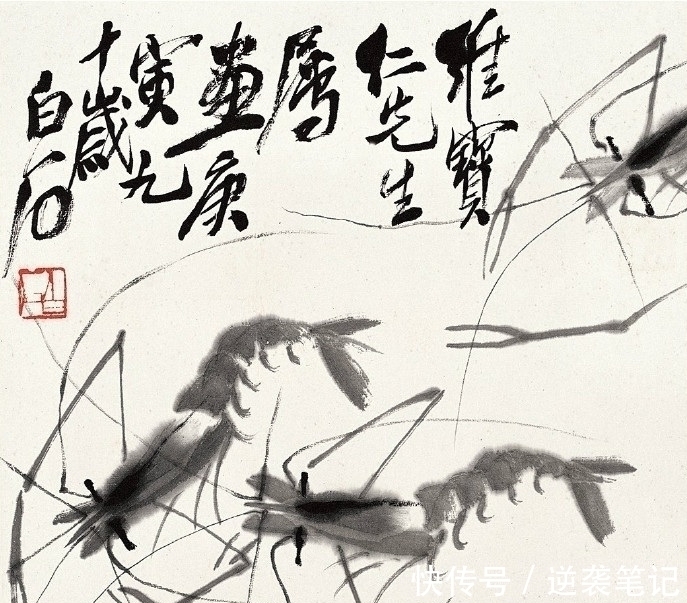 寶
仁先生
屬
畫庚
寅九
十歲
白石
快传号 / 逆袭笔记